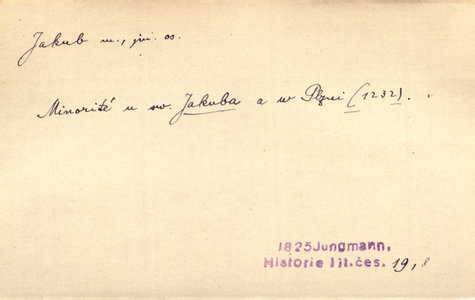 Jakub m., jm. os.
Minorité u sv. Jakuba a w Plzni (1232).
1825 Jungmann,
Historie lit.čes. 19,8